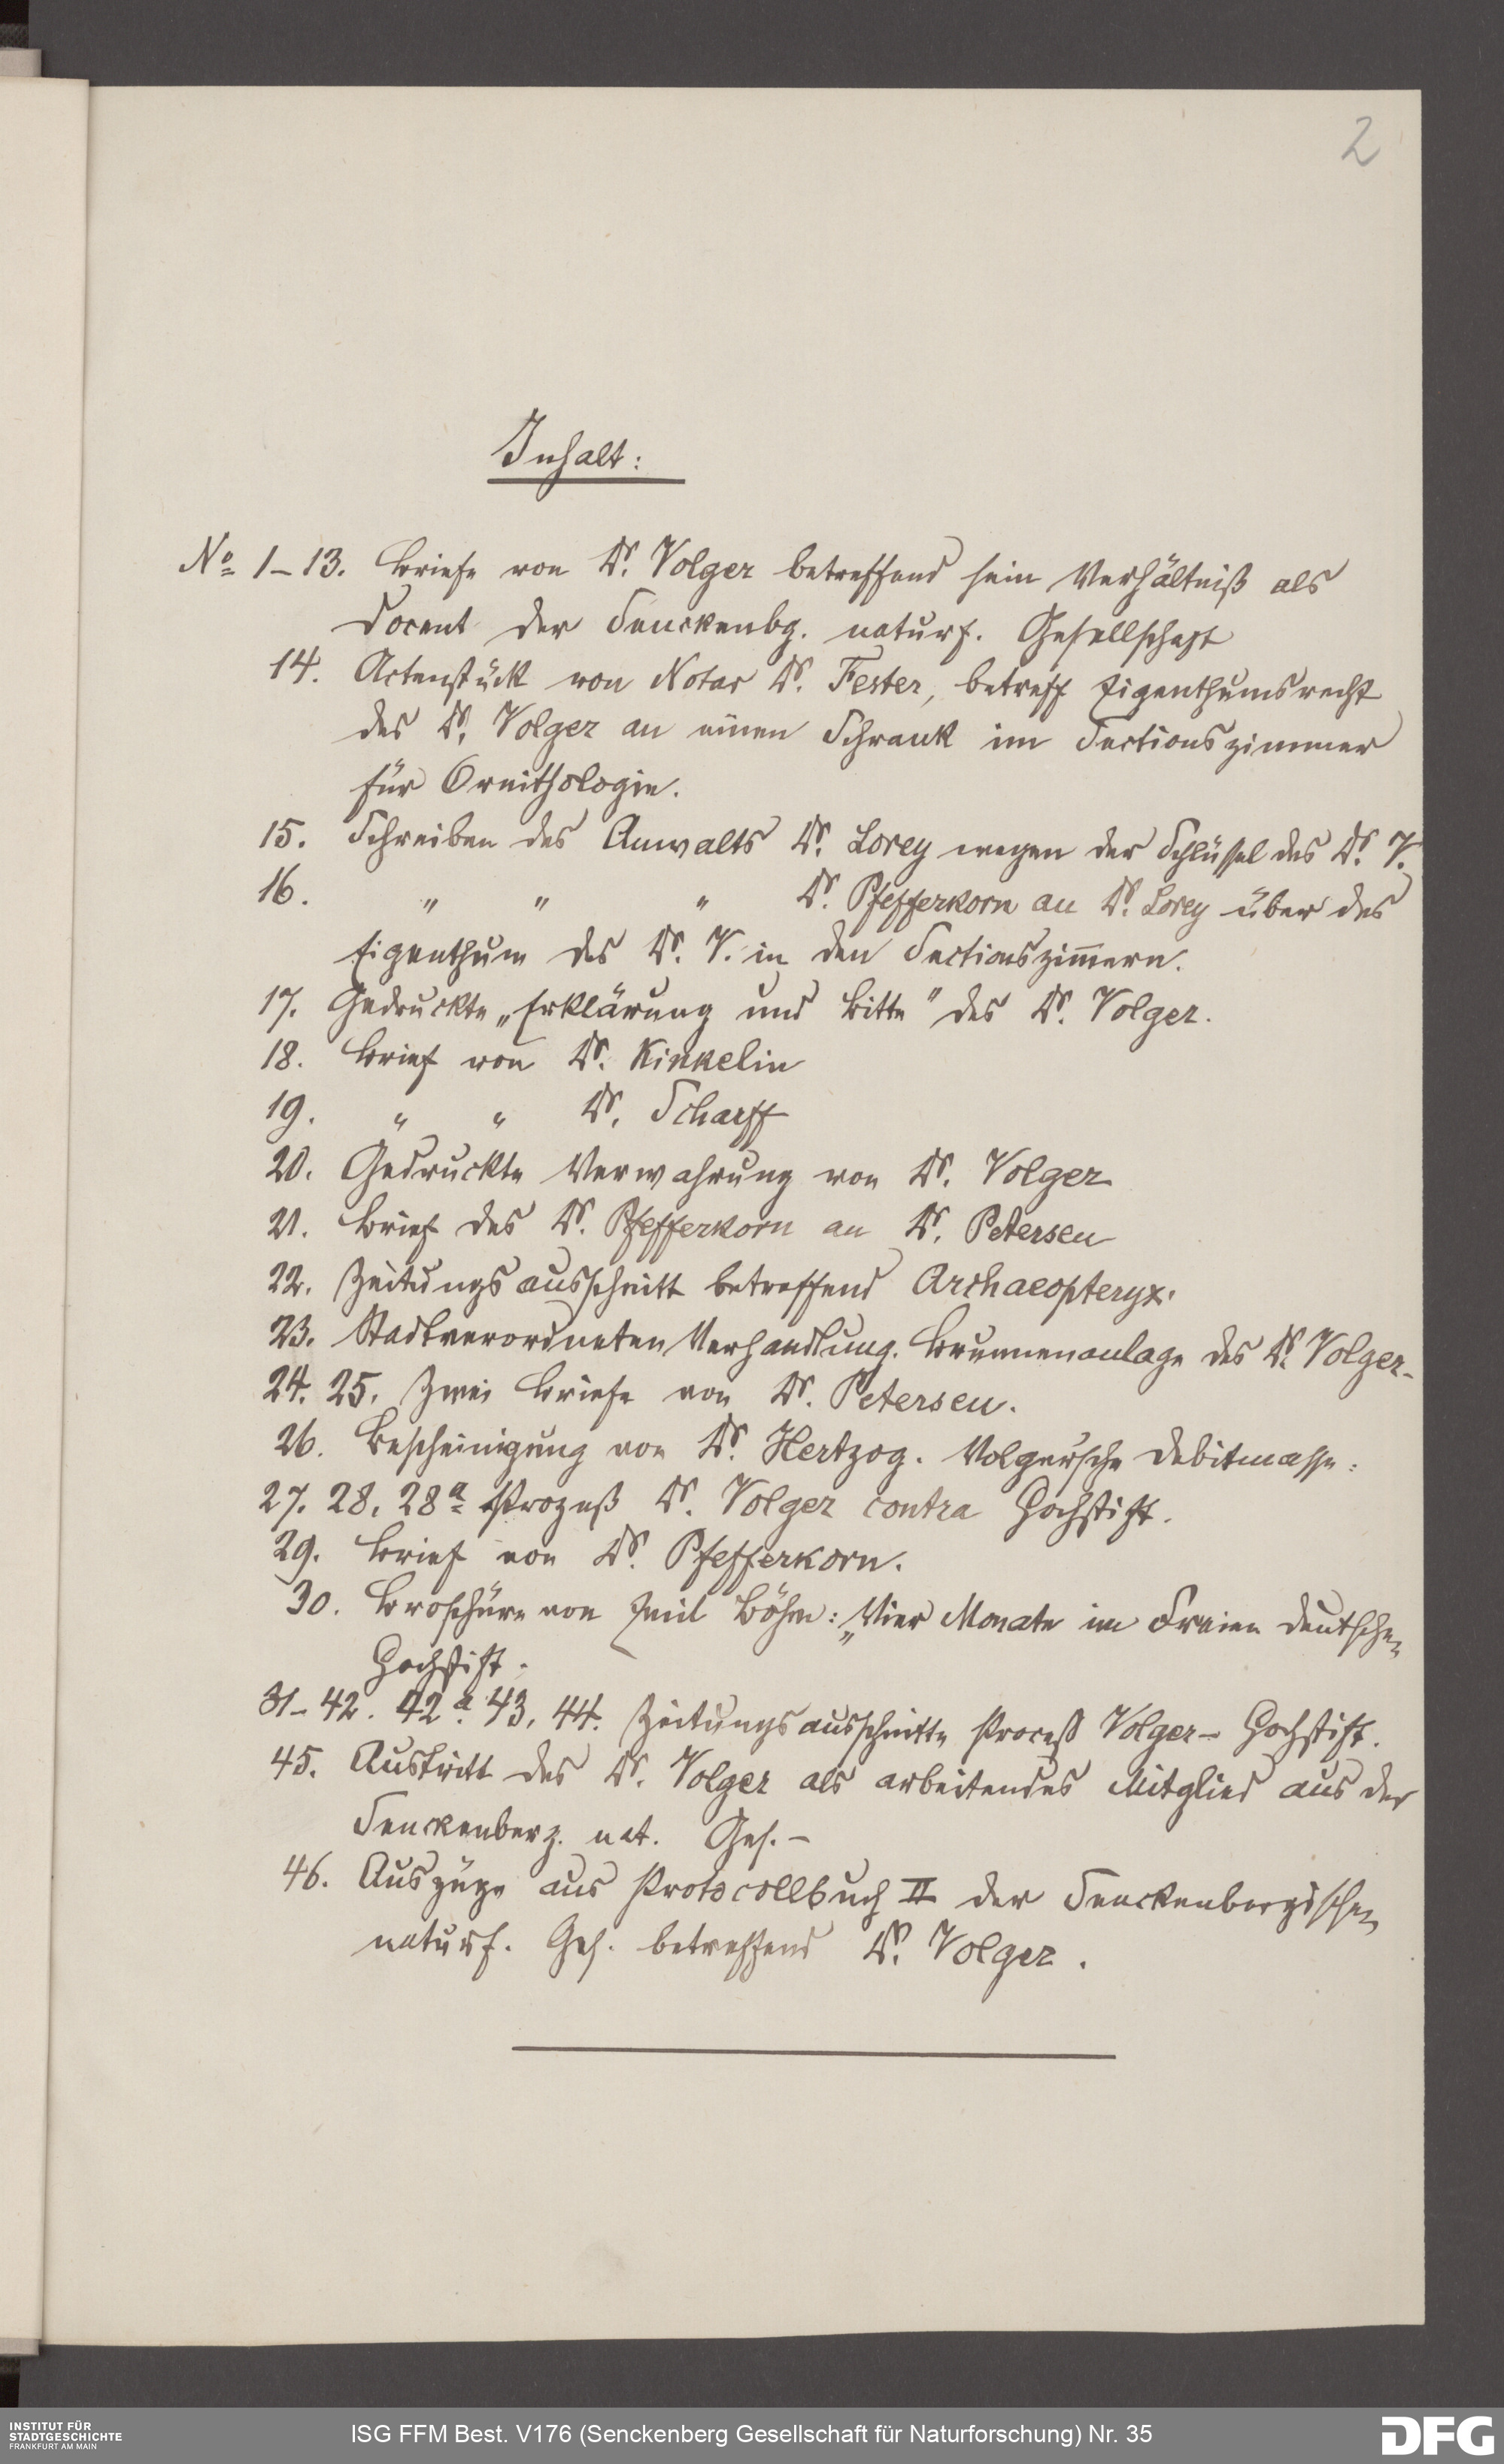 2
Inhalt:
No 1–13. Briefe von Dr. Volger betreffend sein Verhältniß als
Docent der Senckenbg. naturf. Gesellschaft
14. Actenstück von Notar Dr. Fester, betreff Eigenthumsrecht
des Dr. Volger an einen Schrank im Sectionszimmer
für Ornithologie.
15. Schreiben des Anwalts Dr. Lorey wegen der Schlüssel des Dr. V.
16. " " " Dr. Pfefferkorn an Dr. Lorey über das
Eigenthum des Dr. V. in den Sectionszim̄ern.
17. Gedruckte „Erklärung und Bitte" des Dr. Volger.
18. Brief von Dr. Kinkelin
19. " " Dr. Scharff
20. Gedruckte Verwahrung von Dr. Volger
21. Brief des Dr. Pfefferkorn an Dr. Petersen
22. Zeitungsausschnitt betreffend Archaeopteryx.
23. Stadtverordneten Verhandlung. Brunnenanlage des Dr. Volger.
24. 25. Zwei Briefe von Dr. Petersen.
26. Bescheinigung von Dr. Hertzog. Volger'sche Debitmasse.
27. 28. 28a Prozeß Dr. Volger contra Hochstift.
29. Brief von Dr. Pfefferkorn.
30. Broschüre von Emil Böhm: „Vier Monate im Freien Deutschen
Hochstift.
31–42. 42a. 43. 44. Zeitungsausschnitte Proceß Volger – Hochstift.
45. Austritt des Dr. Volger als arbeitendes Mitglied aus der
Senckenberg. nat. Ges. –
46. Auszüge aus Protocollbuch II der Senckenbergischen
naturf. Ges. betreffend Dr. Volger.
INSTITUT FÜR
STADTGESCHICHTE
FRANKFURT AM MAIN
ISG FFM Best. V176 (Senckenberg Gesellschaft für Naturforschung) Nr. 35
DFG